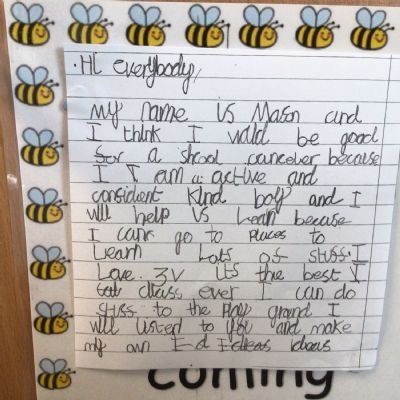 Hi everybody,
My name is Mason and
I think I wuld be good
for a shcool cancoler because
I I am a active and
consident kind boy and I
will help us learn because
I cans go to places to
learn Lots of stuff. I
Love 3V its the best I
class ever I can do
stuff to the Play ground I
will listen to you and make
my own I d Ideas ideas
coming